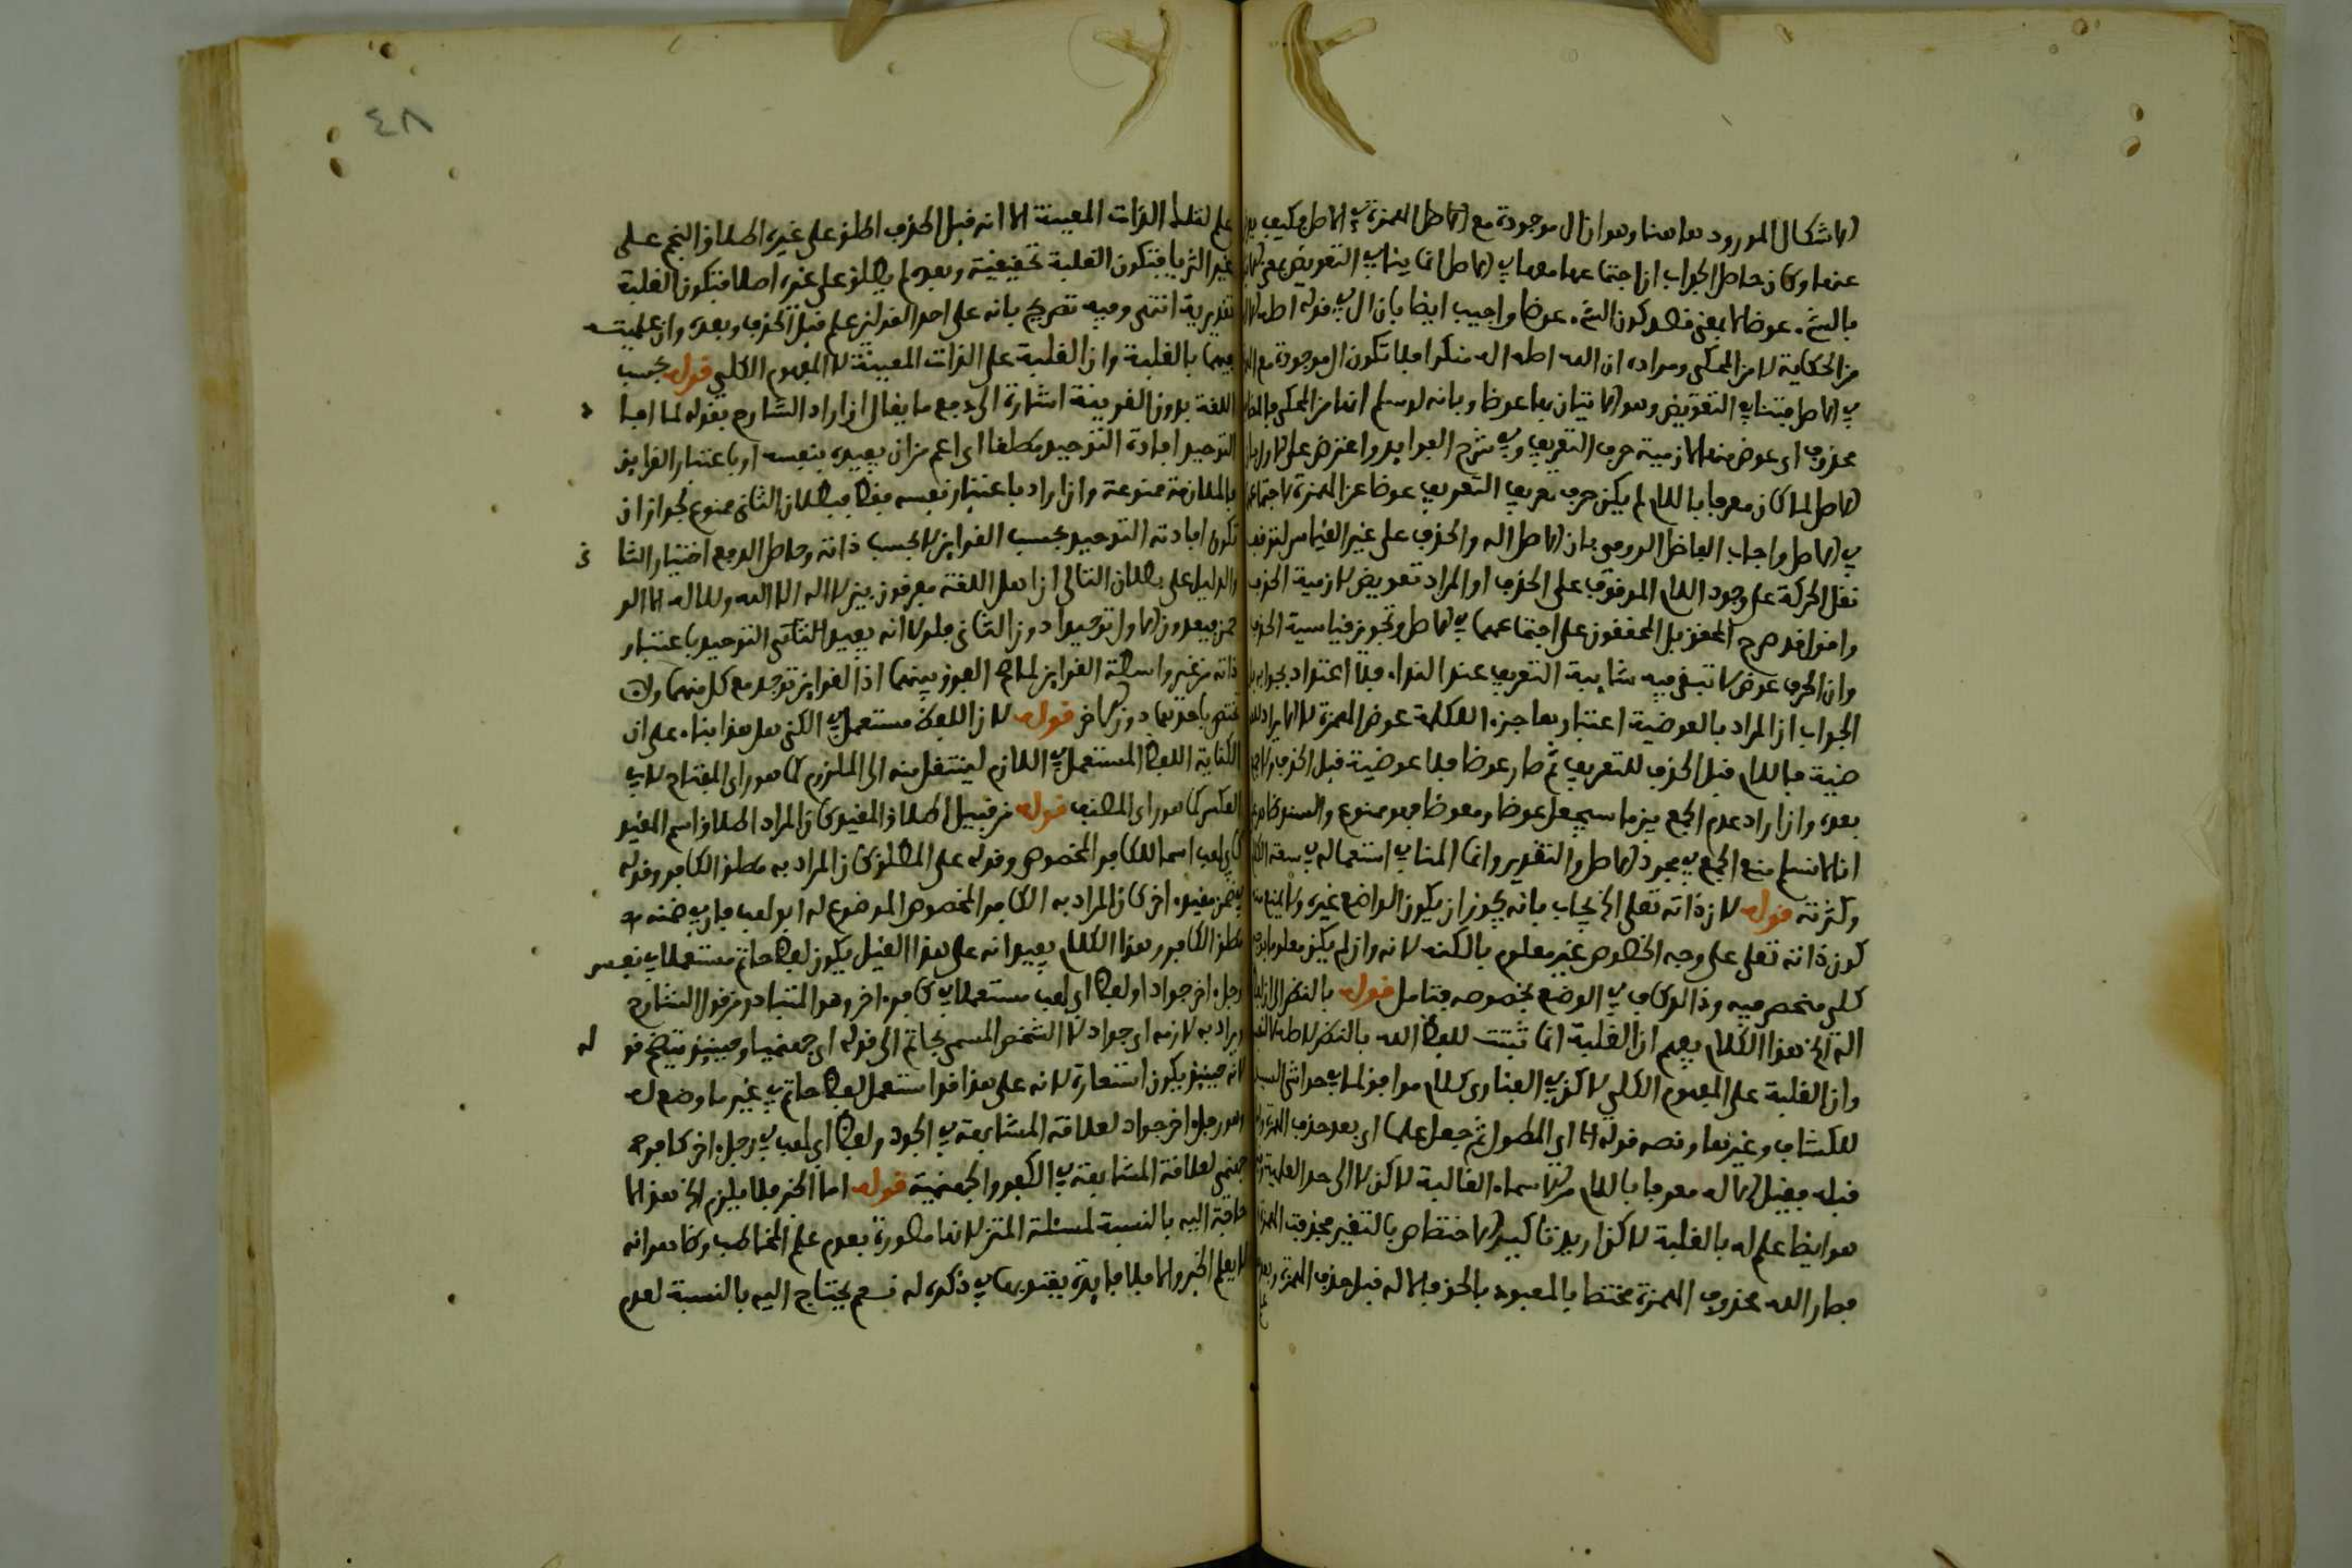 الاشكال المورود هاهنا وهو ان ال موجودة مع الاصل الهمزة في الاصل فكيف
عنها وكان حاصل الجواب ان اجتماعهما معها في الاصل انما ينافي التعويض بمعنى
بالشيء عوضا لا بمعنى قصد كون الشيء عوضا واجيب ايضا بان ال في قوله اصله
من الحكاية لا من المحكي ومراده ان الله اصله اله منكرا فلا تكون ال موجودة مع
في الاصل فتنافي التعويض وهو الاتيان بها عوضا وبانه لو سلم انها من المحكي
محذوف اي عوض منه لازمية حرف التعريف وفي شرح الفوايد واعترض على الاول بان
الاصل لما كان معرفا باللام لم يكن حرف تعريف التعريف عوضا عن الهمزة لاجتماعهما
في الاصل واجاب الفاضل الرومي بان الاصل اله والحذف على غير القياس لتوقف
نقل الحركة على وجود اللام الموقوف على الحذف او المراد تعويض لازمية الحذف
واقول قد صرح المحقق بل المحققون على اجتماعهما في الاصل وتجويز قياسية الحذف
وان الحرف عوض لا تبقى فيه شايبة التعريف عند النداء فلا اعتداد بجوابه
الجواب ان المراد بالعوضية اعتبارها جزء الكلمة عوض الهمزة لا الايراد
ضية فاللام قبل الحذف للتعريف ثم صار عوضا فلا عوضية قبل الحذف
بعده وان اراد عدم الجمع بين ما سيجعل عوضا ومعوضا فهو ممنوع والسند
انا لا نسلم منع الجمع في مجرد الاصل والتقدير وانما المنافي استعماله في سعة
وكثرته قوله لان ذاته تعلى الخ يجاب بانه يجوز ان يكون الواضع غيره ولا يمنع
كون ذاته تعلى على وجه الخصوص غير معلوم بالكنه لانه وان لم يكن معلوما
كلي منحصر فيه وذا لو كاف في الوضع بخصوصه فتامل قوله بالنظر
اله الخ هذا الكلام يفهم ان الغلبة انما ثبتت للفظ الله بالنظر لاصله
وان الغلبة على المفهوم الكلي لاكن في الفناري كلام موافق لما في حواشي السيد
للكشاف وغيرها ونصه قوله اي المطول ثم جعل علما اي بعد حذف الهمزة
قبله فقيل الاله معرفا باللام من الاسماء الغالبة لاكن لا الى حد العلمية
هو ايضا علم له بالغلبة لاكن اريد تاكيد الاختصاص بالتغير فحذفت الهمزة
فصار الله محذوف الهمزة مختصا بالمعبود بالحق فالاله قبل حذف الهمزة وبعده
٤٨
علم لتلك الذات المعينة الا انه قبل الحذف اطلق على غيره اطلاق النجم على
غير الثريا فتكون الغلبة تحقيقية وبعده لم يطلق على غيره اصلا فتكون الغلبة
تقديرية انتهى وفيه تصريح بانه على احد القولين علم قبل الحذف وبعده وان علميته
فيهما بالغلبة وان الغلبة على الذات المعينة لا المفهوم الكلي قوله بحسب
اللغة بدون القرينة اشارة الى دفع ما يقال ان اراد الشارح بقوله لما افا د
التوحيد افادة التوحيد مطلقا اي اعم من ان يفيده بنفسه او باعتبار القراين
فالملازمة ممنوعة وان اراد باعتبار نفسه فقط فبطلان الثاني ممنوع لجواز ان
تكون افادته التوحيد بحسب القراين لا بحسب ذاته وحاصل الدفع اختيار الثا ني
والدليل على بطلان التالي ان اهل اللغة يفرقون بين لا اله الا الله ولا اله الا الر
حمن فيعدون الاول توحيدا دون الثاني فلولا انه يفيد الثاني التوحيد باعتبار
ذاته من غير واسطة القراين لما صح الفرق بينهما اذ القراين توجد مع كل منهما ولا
تختص باحدهما دون الاخر قوله لان اللفظ مستعمل الكنى هل هذا بناء على ان
الكناية اللفظ المستعمل في اللازم لينتقل منه الى الملزوم كما هو راي المفتاح لا في
العكس كما هو راي المطنب قوله من قبيل اطلاق المقيد كان المراد اطلاق اسم المقيد
كابي لهب اسم الكافر المخصوص وقوله على المطلق كان المراد به مطلق الكافر وقوله
في ضمن مقيد اخر كان المراد به الكافر المخصوص الموضوع له ابو لهب فان في ضمنه
مطلق الكافر وهذا الكلام يفيد انه على هذا القيل يكون لفظ حاتم مستعملا في نفس
رجل اخر جواد او لفظ ابي لهب مستعملا في كافر اخر وهو المتبادر من قول الشارح
ويراد به لازمه اي جواد لا الشخص المسمى بحاتم الى قوله اي جهنميا وحينئذ يتضح قو له
لانه حينئذ يكون استعارة لانه على هذا قد استعمل لفظ حاتم في غير ما وضع له
وهو رجل اخر جواد لعلاقة المشابهة في الجود ولفظ ابي لهب في رجل اخر كافر
جهنمي لعلاقة المشابهة في الكفر والجهنمية قوله اما الخبر فلا يلزم الخ هذا لا
حاجة اليه بالنسبة لمسئلة المتن لانها مصورة بعدم علم المخاطب وكا هو انه
لا يعلم الخبر والا فلا فايدة يعتد بها في ذكره له نعم يحتاج اليه بالنسبة لعدم